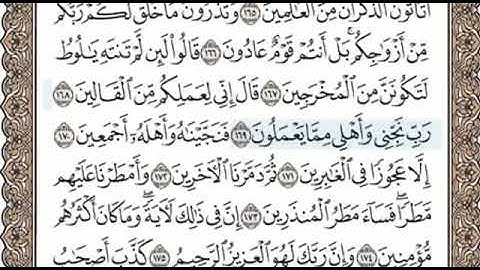 أَتَأْتُونَ ٱلذُّكْرَانَ مِنَ ٱلْعَٰلَمِينَ ١٦٥ وَتَذَرُونَ مَا خَلَقَ لَكُمْ رَبُّكُم
مِّنْ أَزْوَٰجِكُم بَلْ أَنتُمْ قَوْمٌ عَادُونَ ١٦٦ قَالُوا۟ لَئِن لَّمْ تَنتَهِ يَٰلُوطُ
لَتَكُونَنَّ مِنَ ٱلْمُخْرَجِينَ ١٦٧ قَالَ إِنِّى لِعَمَلِكُم مِّنَ ٱلْقَالِينَ ١٦٨
رَبِّ نَجِّنِى وَأَهْلِى مِمَّا يَعْمَلُونَ ١٦٩ فَنَجَّيْنَٰهُ وَأَهْلَهُۥٓ أَجْمَعِينَ ١٧٠
إِلَّا عَجُوزًا فِى ٱلْغَٰبِرِينَ ١٧١ ثُمَّ دَمَّرْنَا ٱلْءَاخَرِينَ ١٧٢ وَأَمْطَرْنَا عَلَيْهِم
مَّطَرًا فَسَآءَ مَطَرُ ٱلْمُنذَرِينَ ١٧٣ إِنَّ فِى ذَٰلِكَ لَءَايَةً وَمَا كَانَ أَكْثَرُهُم
مُّؤْمِنِينَ ١٧٤ وَإِنَّ رَبَّكَ لَهُوَ ٱلْعَزِيزُ ٱلرَّحِيمُ ١٧٥ كَذَّبَ أَصْحَٰبُ